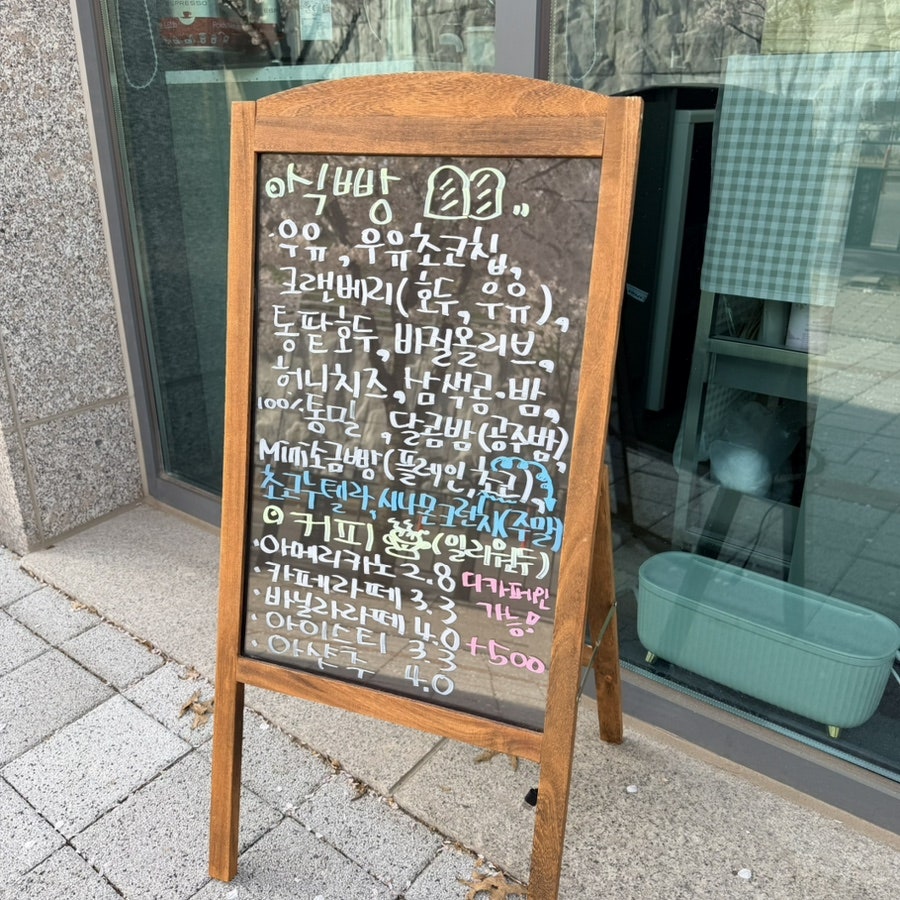 식빵
·우유, 우유초코칩,
크랜베리(호두, 우유),
통팥호두, 바질올리브,
허니치즈, 남색콩·밤,
100% 통밀, 달콤밤(공주밤),
Mini소금빵(플레인, 초코),
초코누텔라, 시나몬크런치(주말)
커피 (일리원두)
·아메리카노 2.8
·카페라떼 3.3
·바닐라라떼 4.0
·아이스티 3.3
·아샷추 4.0
디카페인
가능
+500